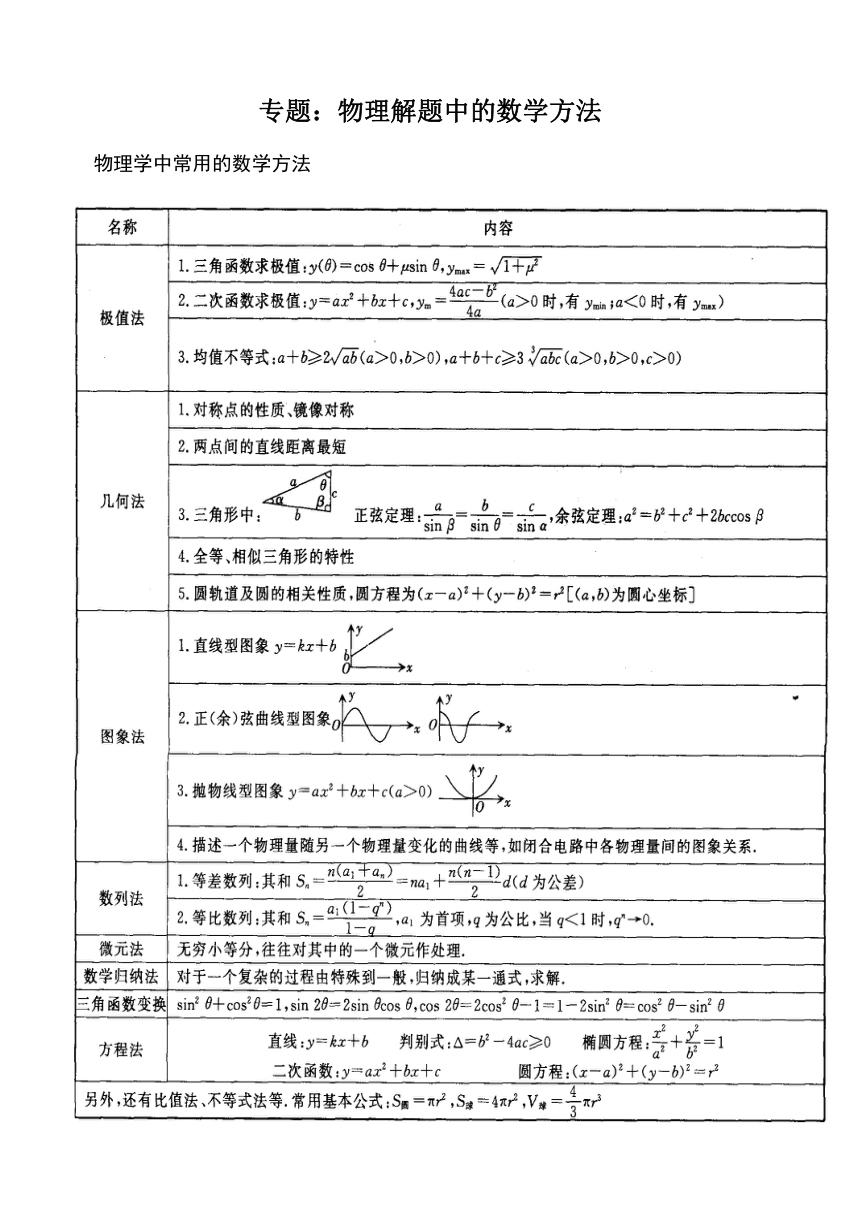 专题：物理解题中的数学方法
物理学中常用的数学方法
名称 内容
极值法
1.三角函数求极值:y(θ)=cos θ+μsin θ,ymax=√(1+μ²)
2.二次函数求极值:y=ax²+bx+c,ym=(4ac-b²)/4a(a>0时,有ymin;a<0时,有ymax)
3.均值不等式:a+b≥2√ab(a>0,b>0),a+b+c≥3∛abc(a>0,b>0,c>0)
几何法
1.对称点的性质、镜像对称
2.两点间的直线距离最短
3.三角形中: a θ c α β b 正弦定理:a/sin β=b/sin θ=c/sin α,余弦定理:a²=b²+c²+2bccos β
4.全等、相似三角形的特性
5.圆轨道及圆的相关性质,圆方程为(x-a)²+(y-b)²=r²[(a,b)为圆心坐标]
图象法
1.直线型图象 y=kx+b y b O x
2.正(余)弦曲线型图象 y O x y O x
3.抛物线型图象 y=ax²+bx+c(a>0) y O x
4.描述一个物理量随另一个物理量变化的曲线等,如闭合电路中各物理量间的图象关系.
数列法
1.等差数列:其和 Sn=n(a₁+an)/2=na₁+n(n-1)/2 d(d为公差)
2.等比数列:其和 Sn=a₁(1-qⁿ)/(1-q),a₁为首项,q为公比,当q<1时,qⁿ→0.
微元法 无穷小等分,往往对其中的一个微元作处理.
数学归纳法 对于一个复杂的过程由特殊到一般,归纳成某一通式,求解.
三角函数变换 sin²θ+cos²θ=1,sin 2θ=2sin θcos θ,cos 2θ=2cos²θ-1=1-2sin²θ=cos²θ-sin²θ
方程法
直线:y=kx+b 判别式:Δ=b²-4ac≥0 椭圆方程:x²/a²+y²/b²=1
二次函数:y=ax²+bx+c 圆方程:(x-a)²+(y-b)²=r²
另外,还有比值法、不等式法等.常用基本公式:S圆=πr²,S球=4πr²,V球=4/3πr³